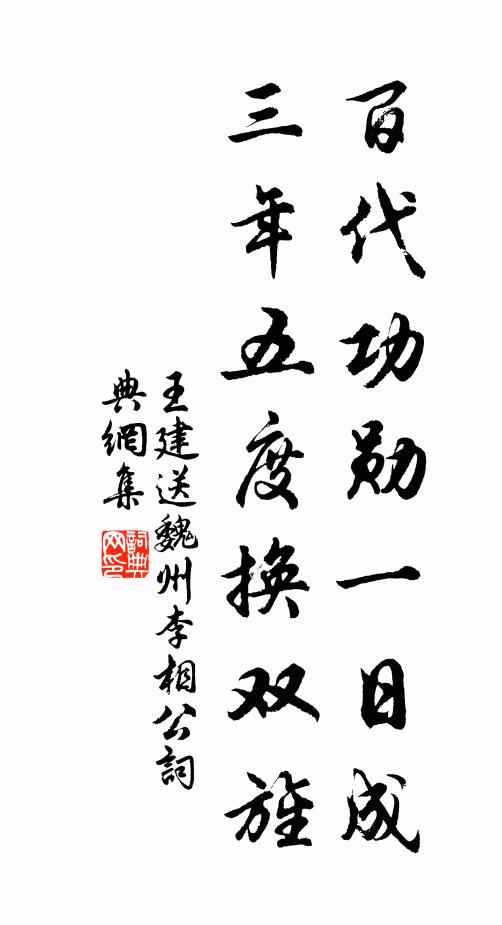 百代功勋一日成
三年五度换双旌
王建送魏州李相公詞
典網集
詞典
网印